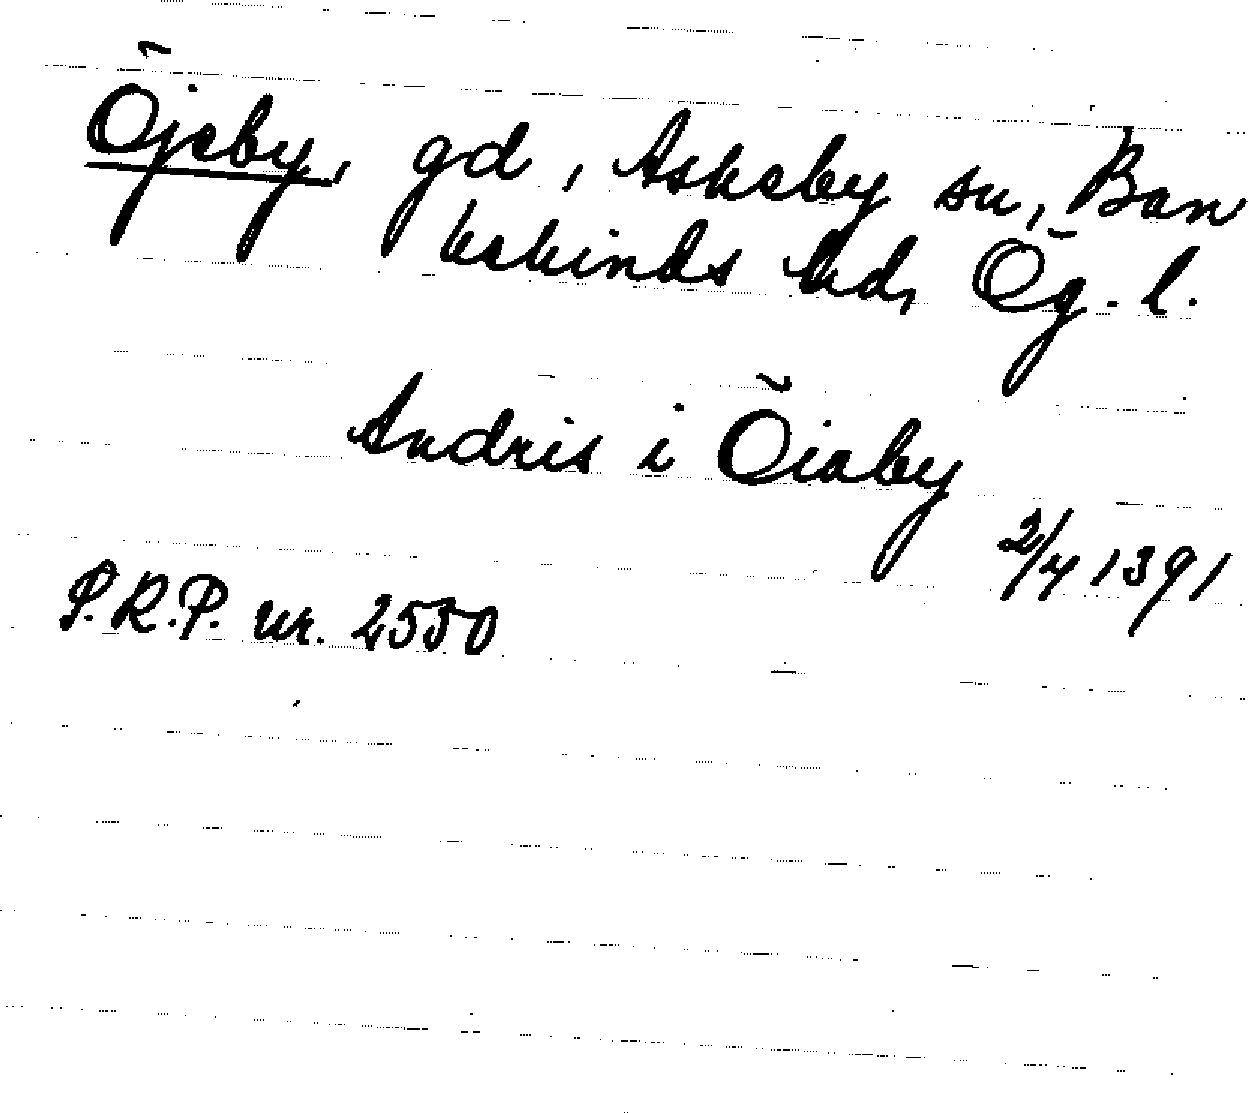 Öjeby, gd, Askeby sn, Ban
kekinds hd, Ög. l.
Andris i Öiaby
2/4 1391
P.R.P. nr. 2550